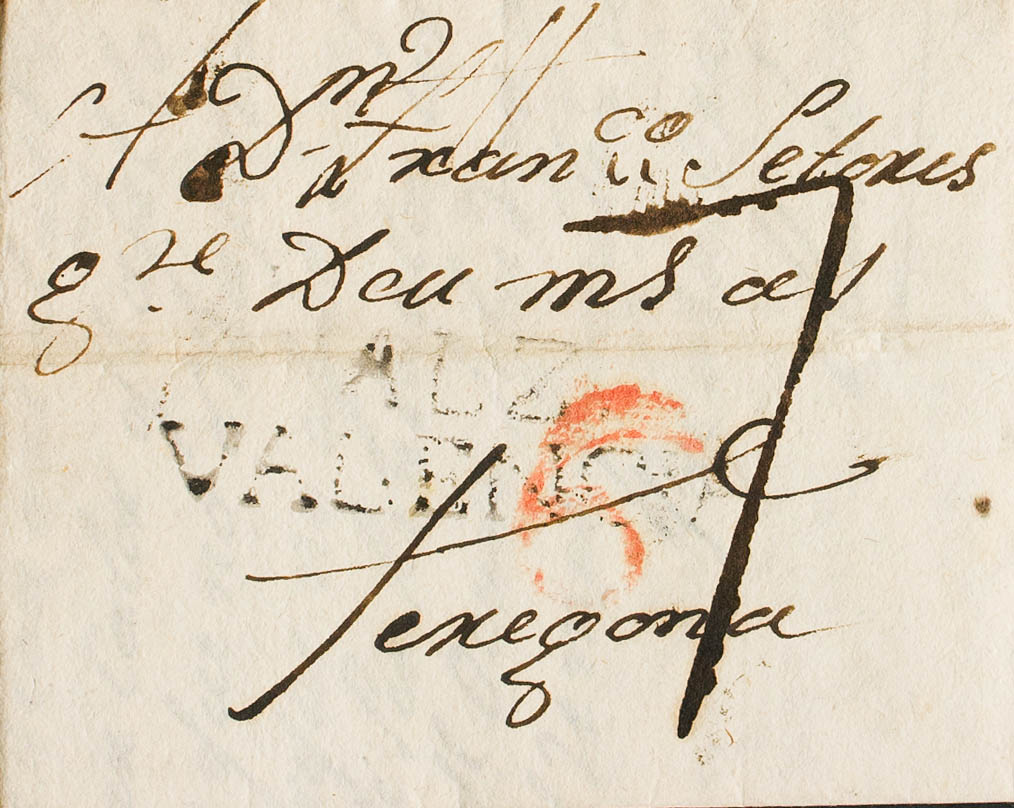 A Dn Franco Setoris
gde Deu ms as
ALZ
VALENC
6
7
Teregona